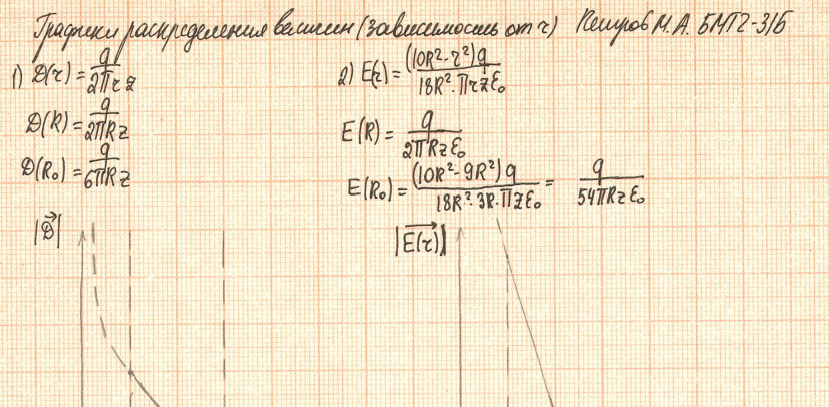 Графики распределения величин (зависимость от r) Петров М.А. БМТ2-31Б
1) D(r) = q / 2πrz
D(R) = q / 2πRz
D(R₀) = q / 6πRz
|D⃗|
2) E(r) = (10R²-r²)q / 18R²·πrzε₀
E(R) = q / 2πRzε₀
E(R₀) = (10R²-9R²)q / 18R²·3R·πzε₀ = q / 54πRzε₀
|E(r)|